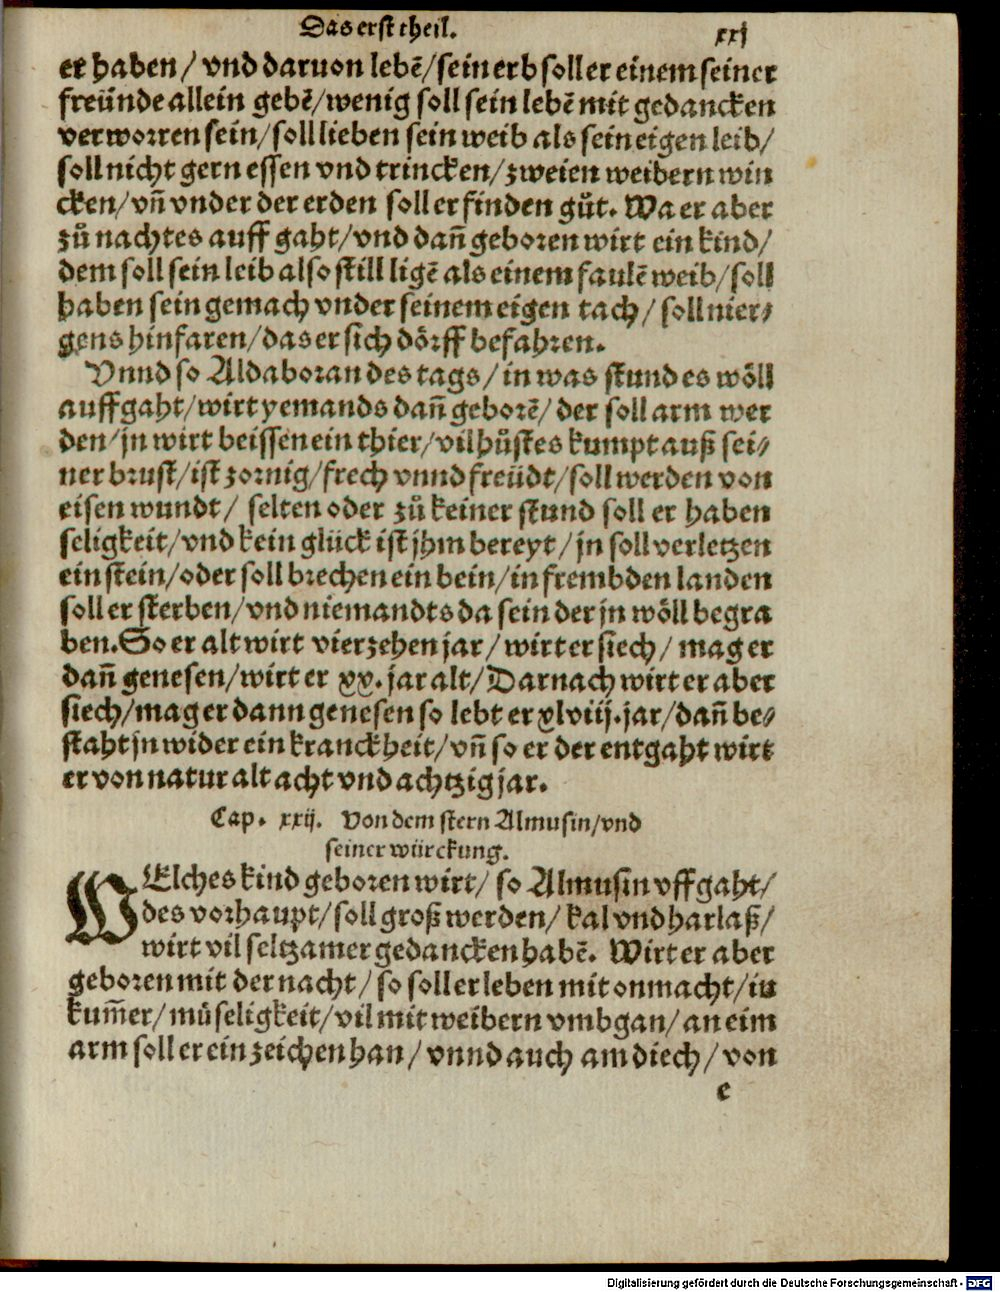 Das erst theil. xxj
er haben / vnd daruon lebẽ / sein erb soll er einem seiner
freünde allein gebẽ / wenig soll sein lebẽ mit gedancken
verworren sein / soll lieben sein weib als sein eigen leib /
soll nicht gern essen vnd trincken / zweien weibern win
cken / vñ vnder der erden soll er finden gůt. Wa er aber
zů nachtes auff gaht / vnd dañ geboren wirt ein kind /
dem soll sein leib also still ligẽ als einem faulẽ weib / soll
haben sein gemach vnder seinem eigen tach / soll nier⸗
gens hinfaren / das er sich dörff befahren.
Vnnd so Aldaboran des tags / in was stund es wöll
auffgaht / wirt yemands dañ geborẽ / der soll arm wer
den / jn wirt beissen ein thier / vil hůstes kumpt auß sei⸗
ner brust / ist zornig / frech vnnd freüdt / soll werden von
eisen wundt / selten oder zů keiner stund soll er haben
seligkeit / vnd kein glück ist jhm bereyt / jn soll verletzen
ein stein / oder soll brechen ein bein / in frembden landen
soll er sterben / vnd niemandts da sein der jn wöll begra
ben. So er alt wirt vierzehen jar / wirt er siech / mag er
dañ genesen / wirt er xx. jar alt / Darnach wirt er aber
siech / mag er dann genesen so lebt er xlviij. jar / dañ be⸗
staht jn wider ein kranckheit / vñ so er der entgaht wirt
er von natur alt acht vnd achtzig jar.
Cap. xxij. Von dem stern Almusin / vnd
seiner würckung.
WElches kind geboren wirt / so Almusin vffgaht /
des vorhaupt / soll groß werden / kal vnd harlaß /
wirt vil seltzamer gedancken habẽ. Wirt er aber
geboren mit der nacht / so soll er leben mit onmacht / in
kum̃er / můseligkeit / vil mit weibern vmbgan / an eim
arm soll er ein zeichen han / vnnd auch am diech / von
e
Digitalisierung gefördert durch die Deutsche Forschungsgemeinschaft - DFG